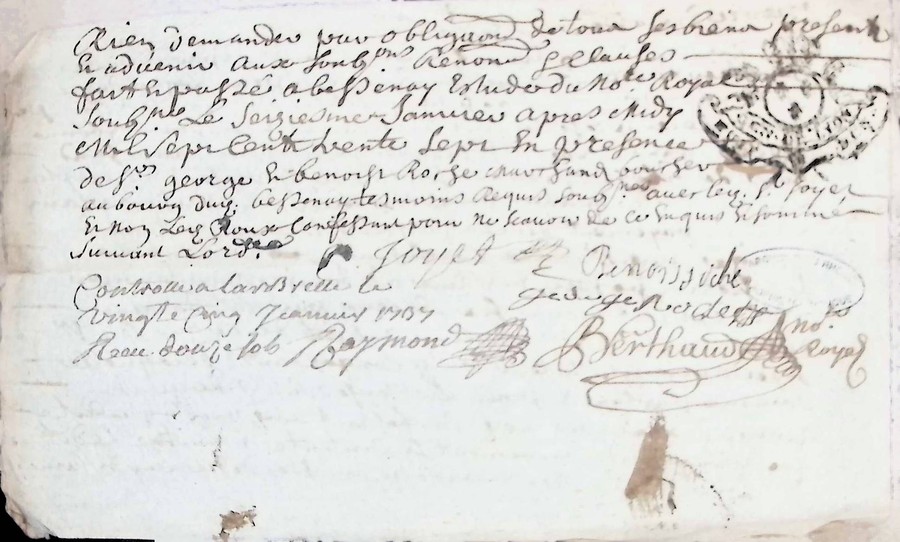 Rien demander par obliga͠on de tous ses biens present
Et advenir aux soub͠ons Renon͠d & clauses
fait Et passé a bessenay Estude du No͠re Royal
Soub͠né Le seiziesme Janvier apres Midy
Mil sept Cent trente sept En presence
de S͠rs george Et benoist Roche Marchand boucher
au bourg dud. bessenay tesmoins Requis soub͠nés avec led. S͠r Joyet
Et non Led. Roux Confessant pour ne scavoir de ce Enquis Et sommé
suivant Lord͠e.
Joyet
Benoist Roche
george Roche
Controllé a Larbrelle le
vingt Cinq Janvier 1737
Receu douze sols Raymond
Berthaud No͠re Royal